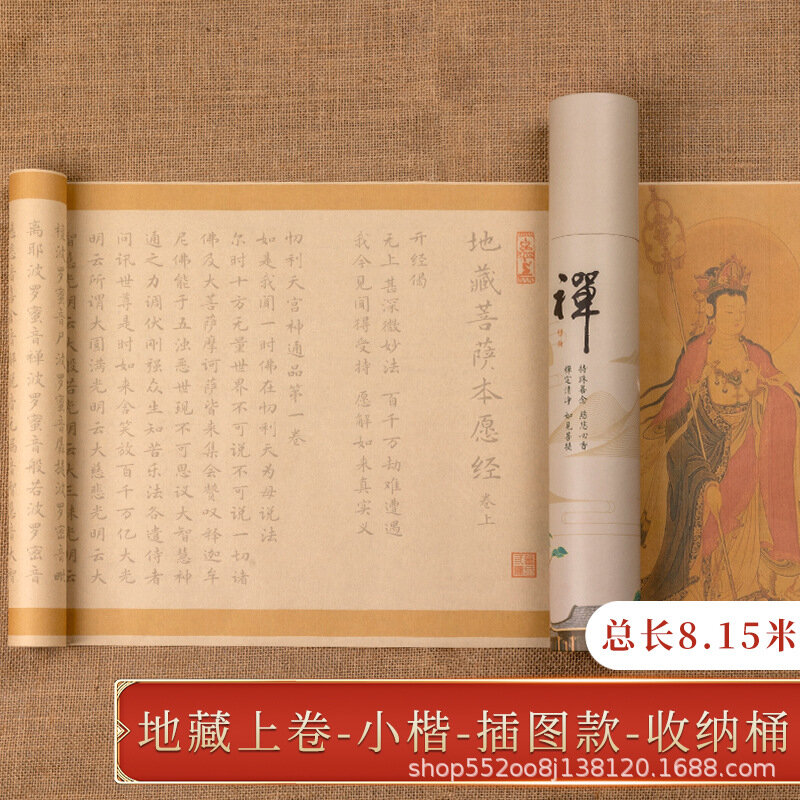 地藏菩萨本愿经 卷上
开经偈
无上甚深微妙法 百千万劫难遭遇
我今见闻得受持 愿解如来真实义
忉利天宫神通品第一卷
如是我闻一时佛在忉利天为母说法
尔时十方无量世界不可说不可说一切诸
佛及大菩萨摩诃萨皆来集会赞叹释迦牟
尼佛能于五浊恶世现不可思议大智慧神
通之力调伏刚强众生知苦乐法各遣侍者
问讯世尊是时如来含笑放百千万亿大光
明云所谓大圆满光明云大慈悲光明云大
波罗蜜音尸波罗蜜音羼提波罗蜜音毗
离耶波罗蜜音禅波罗蜜音般若波罗密音
禪
持珠善念 慈悲心香
禅定清净 如见菩提
总长8.15米
地藏上卷-小楷-插图款-收纳桶
shop552oo8j138120.1688.com